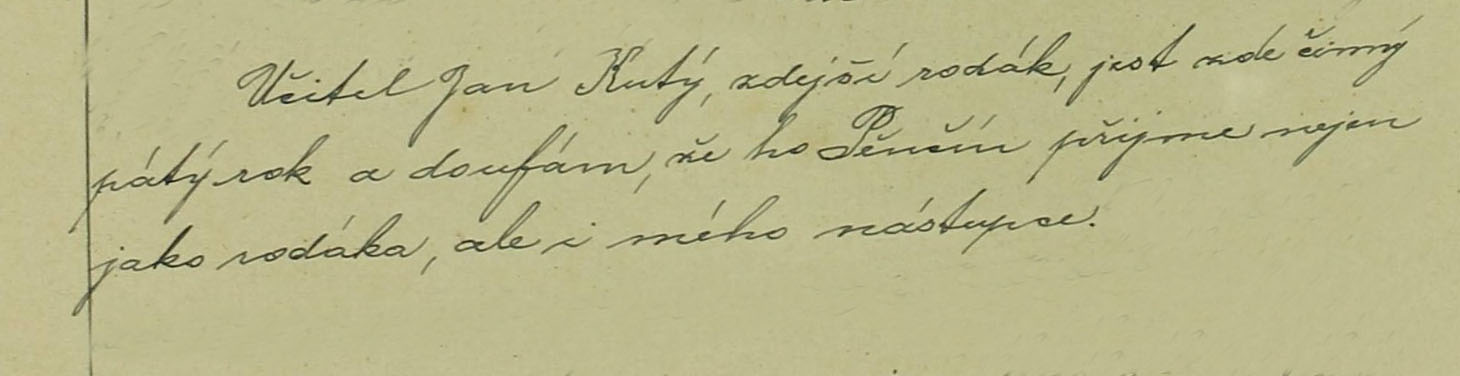 Učitel Jan Kutý, zdejší rodák, jest zde činný
pátý rok a doufám, že ho Pěnčín přijme nejen
jako rodáka, ale i mého nástupce.